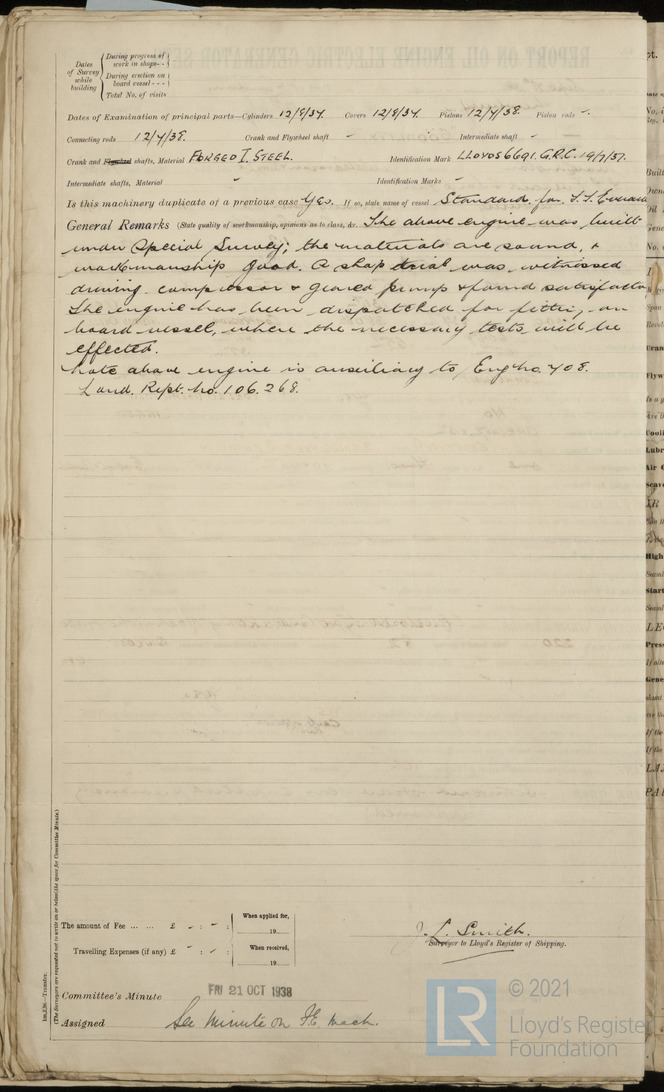 Dates of Survey while building
During progress of work in shops - -
During erection on board vessel - - -
Total No. of visits
Dates of Examination of principal parts—Cylinders 12/8/37. Covers 12/8/37. Pistons 12/4/38. Piston rods -.
Connecting rods 12/4/38. Crank and Flywheel shaft - Intermediate shaft -
Crank and Flywheel shafts, Material FORGED I. STEEL. Identification Mark LLOYDS 6691. G.R.C. 19/7/37.
Intermediate shafts, Material - Identification Marks -
Is this machinery duplicate of a previous case Yes. If so, state name of vessel Standard for
General Remarks (State quality of workmanship, opinions as to class, &c. The above engine was built
under Special Survey; the materials are sound, &
workmanship good. A shop trial was witnessed
driving compressor & geared pump & found
The engine has been dispatched for fitting on
board vessel, where the necessary tests will be
effected.
Note above engine is auxiliary to Eng No. 408.
Lond. Rept. No. 106.268.
The amount of Fee ... ... £ - : - :
When applied for,
19
Travelling Expenses (if any) £ - : - :
When received,
19
J. L. Smith.
Surveyor to Lloyd's Register of Shipping.
Committee's Minute FRI 21 OCT 1938
Assigned See Minute on F.E. Mach.
(The Surveyors are requested not to write on or below the space for Committee Minute.)
© 2021
Lloyd's Register
Foundation
LR